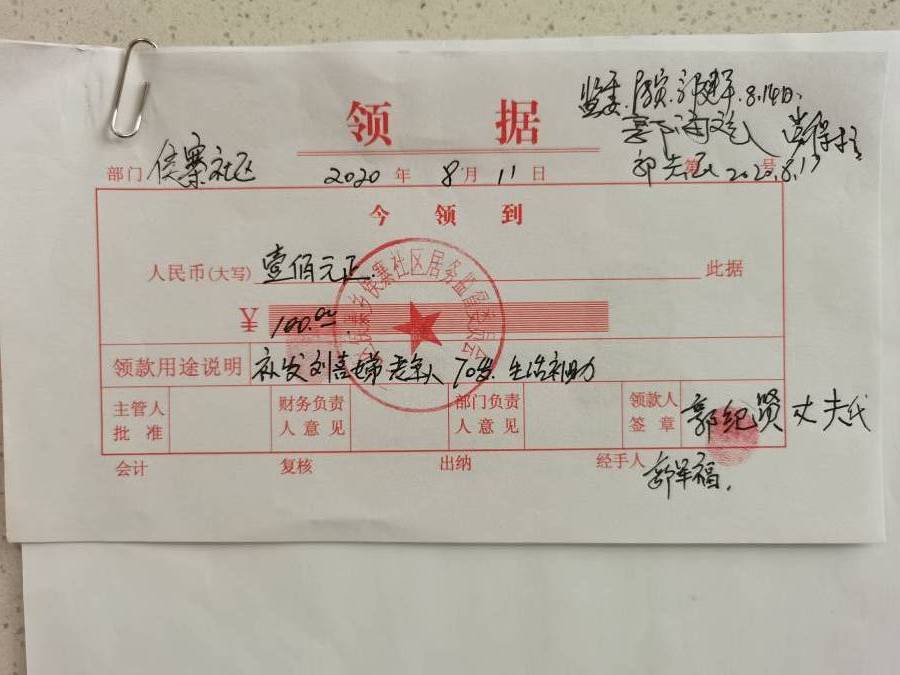 监委.属实.郭建军.8.14日.
领 据
部门 侯寨社区 2020 年 8 月 11 日 第 号
郭先 2020.8.17
今 领 到
人民币(大写) 壹佰元正. 此据
¥ 100.00
侯寨社区居务监督委员会
领款用途说明 补发刘喜娣老年人70岁.生活补助
主管人批准 财务负责人意见 部门负责人意见 领款人签章 郭纪贤 丈夫代
会计 复核 出纳 经手人 郭军福.